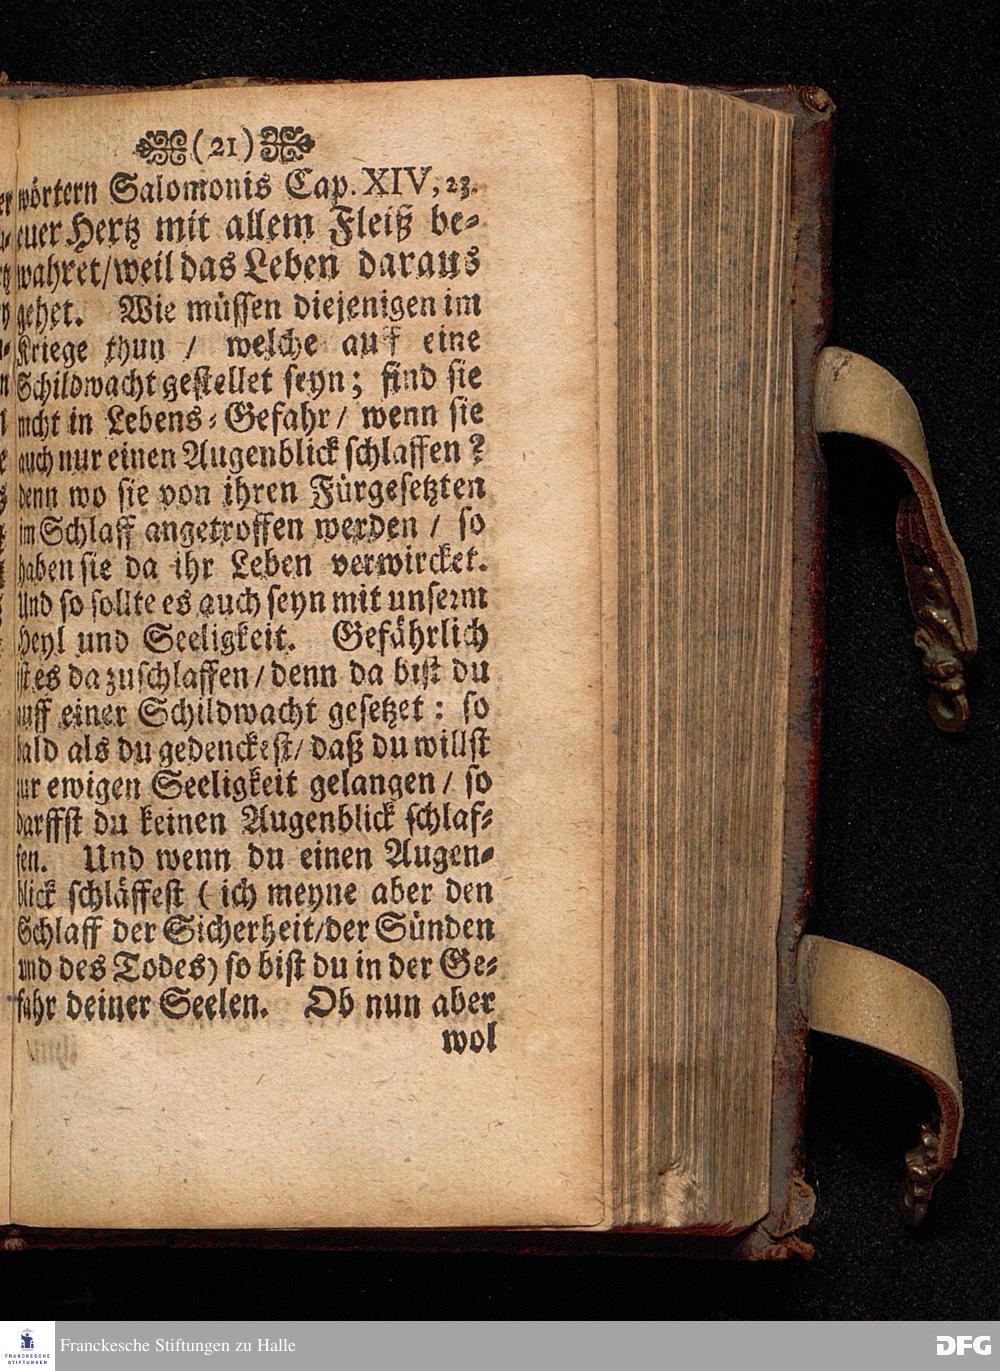 (21)
wörtern Salomonis Cap. XIV, 23.
euer Hertz mit allem Fleiß be-
wahret/weil das Leben daraus
gehet. Wie müssen diejenigen im
Kriege thun / welche auff eine
Schildwacht gestellet seyn; sind sie
nicht in Lebens-Gefahr/ wenn sie
auch nur einen Augenblick schlaffen?
denn wo sie von ihren Fürgesetzten
im Schlaff angetroffen werden / so
haben sie da ihr Leben verwircket.
Und so sollte es auch seyn mit unserm
Heyl und Seeligkeit. Gefährlich
ist es da zuschlaffen/denn da bist du
auff einer Schildwacht gesetzet: so
bald als du gedenckest/daß du willst
zur ewigen Seeligkeit gelangen/ so
darffst du keinen Augenblick schlaf-
fen. Und wenn du einen Augen-
blick schläffest (ich meyne aber den
Schlaff der Sicherheit/der Sünden
und des Todes) so bist du in der Ge-
fahr deiner Seelen. Ob nun aber
wol
FRANCKESCHE
STIFTUNGEN
Franckesche Stiftungen zu Halle
DFG